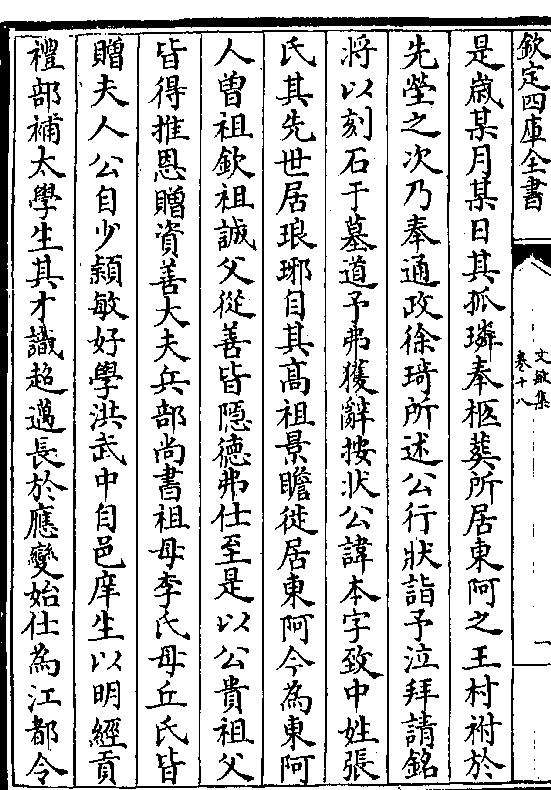 欽定四庫全書
文敏集
卷十八
一
是歲某月某日其孤璘奉柩葬所居東阿之王村祔於
先塋之次乃奉通政徐琦所述公行狀詣予泣拜請銘
將以刻石于墓道予弗獲辭按狀公諱本字致中姓張
氏其先世居琅琊自其高祖景瞻徙居東阿今為東阿
人曾祖欽祖誠父從善皆隱德弗仕至是以公貴祖父
皆得推恩贈資善大夫兵部尚書祖母李氏母丘氏皆
贈夫人公自少穎敏好學洪武中自邑庠生以明經貢
禮部補太學生其才識超邁長於應變始仕為江都令